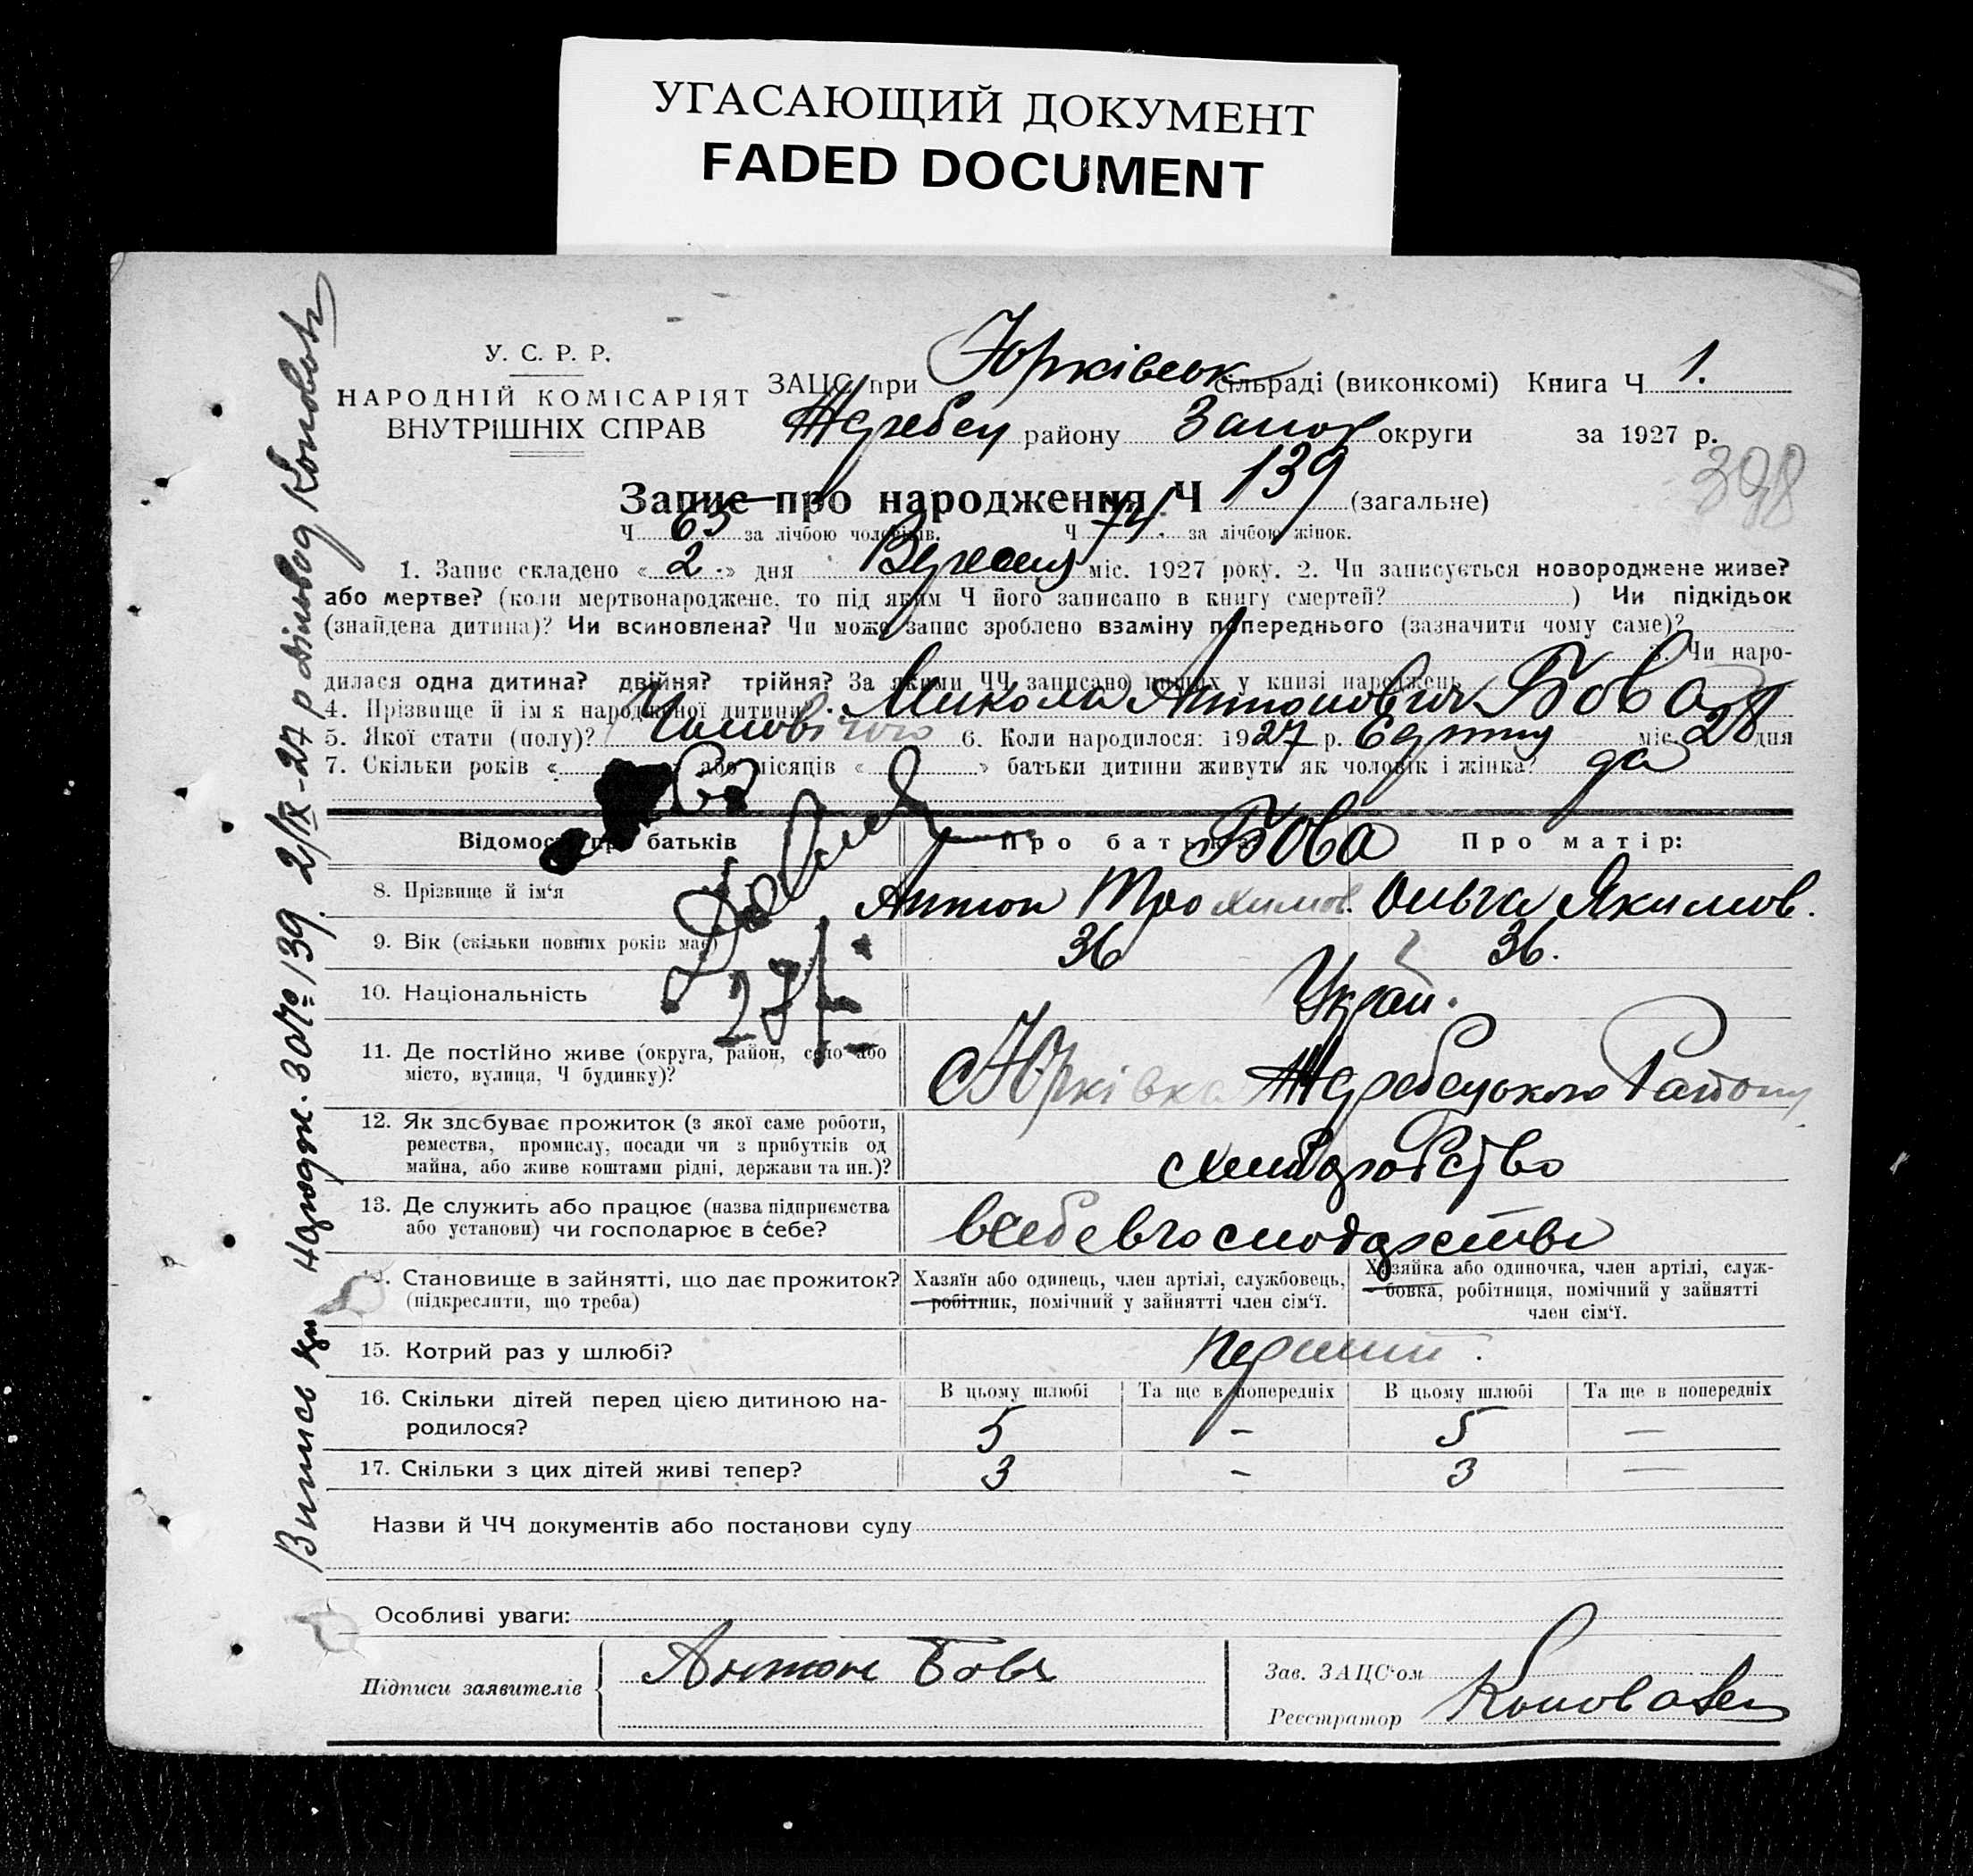 УГАСАЮЩИЙ ДОКУМЕНТ
FADED DOCUMENT
У. С. Р. Р.
НАРОДНІЙ КОМІСАРІЯТ
ВНУТРІШНІХ СПРАВ
ЗАЦС при Юрківськ сільраді (виконкомі) Книга Ч 1.
Жеребец району Запор округи за 1927 р.
398
Запис про народження Ч 139 (загальне)
Ч 65 за лічбою чоловіків. Ч 74. за лічбою жінок.
1. Запис складено « 2 » дня Вересня міс. 1927 року. 2. Чи записується новороджене живе?
або мертве? (коли мертвонароджене, то під яким Ч його записано в книгу смертей? ) Чи підкідьок
(знайдена дитина)? Чи всиновлена? Чи може запис зроблено взаміну попереднього (зазначити чому саме)?
3. Чи наро-
дилася одна дитина? двійня? трійня? За якими ЧЧ записано инших у книзі народжень
4. Прізвище й ім'я народженої дитини Микола Антонович Бова
5. Якої стати (полу)? Чоловічого 6. Коли народилося: 1927 р. Серпня міс. 28 дня
7. Скільки років « або місяців « » батьки дитини живуть як чоловік і жінка? да
Відомості про батьків Про батька: Бова Про матір:
8. Прізвище й ім'я Антон Трохимов. Ольга Якимов.
9. Вік (скільки повних років має) 36 36.
10. Національність Украї.
11. Де постійно живе (округа, район, село або
місто, вулиця, Ч будинку)? с Юрківка Жеребецького Району
12. Як здобуває прожиток (з якої саме роботи,
ремества, промислу, посади чи з прибутків од
майна, або живе коштами рідні, держави та ин.)? хліборобство
13. Де служить або працює (назва підприємства
або установи) чи господарює в себе? в себе в господарстві
14. Становище в зайнятті, що дає прожиток?
(підкреслити, що треба)
Хазяїн або одинець, член артілі, службовець,
робітник, помічний у зайнятті член сім'ї.
Хазяйка або одиночка, член артілі, служ-
бовка, робітниця, помічний у зайнятті
член сім'ї.
15. Котрий раз у шлюбі? перший.
16. Скільки дітей перед цією дитиною на-
родилося?
В цьому шлюбі Та ще в попередніх В цьому шлюбі Та ще в попередніх
5 - 5 —
17. Скільки з цих дітей живі тепер? 3 - 3 —
Назви й ЧЧ документів або постанови суду
Особливі уваги:
Підписи заявителів Антон Бова
Зав. ЗАЦС'ом
Реєстратор Коновал